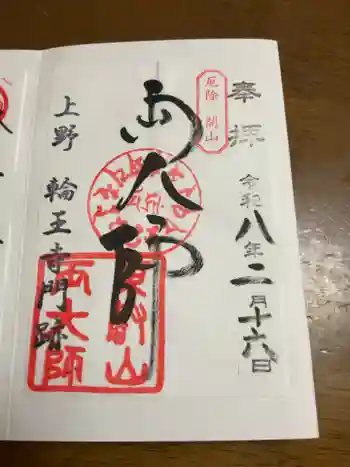 奉拝
令和八年二月十六日
厄除 開山
両大師
両大師
上野 輪王寺門跡